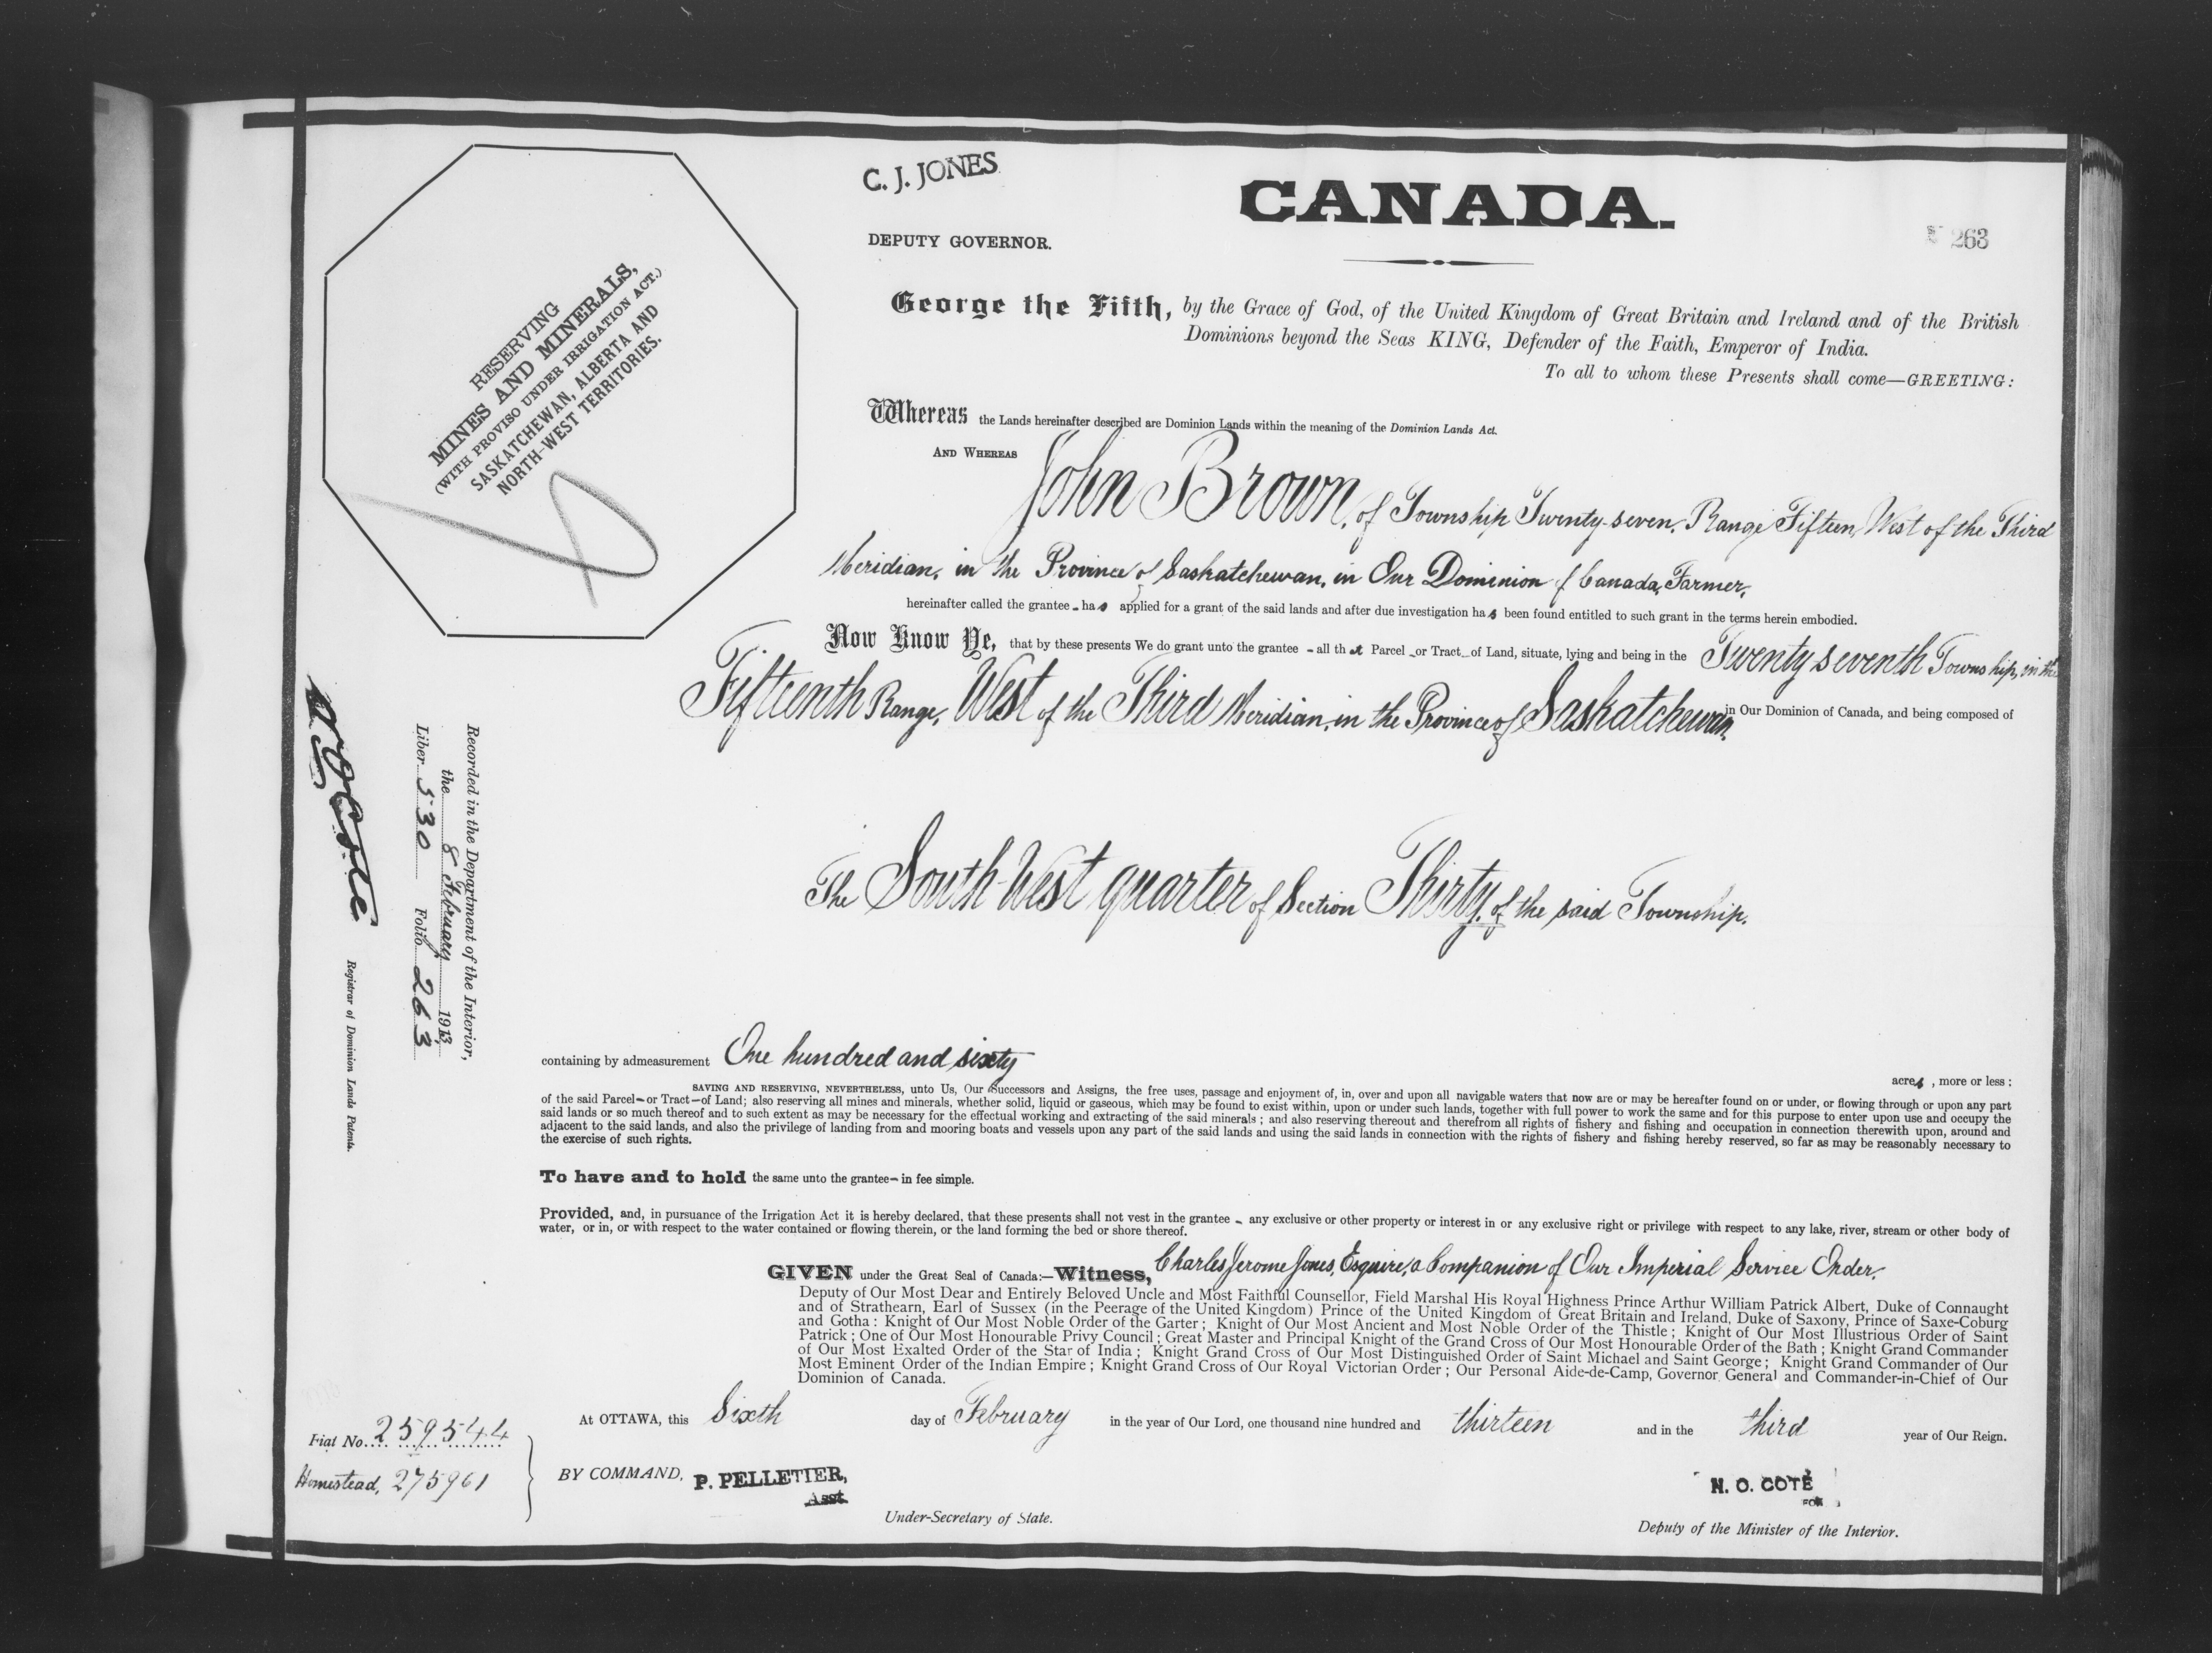 C. J. JONES
DEPUTY GOVERNOR.
CANADA.
263
RESERVING
MINES AND MINERALS,
(WITH PROVISO UNDER IRRIGATION ACT.)
SASKATCHEWAN, ALBERTA AND
NORTH-WEST TERRITORIES.
George the Fifth, by the Grace of God, of the United Kingdom of Great Britain and Ireland and of the British
Dominions beyond the Seas KING, Defender of the Faith, Emperor of India.
To all to whom these Presents shall come—GREETING:
Whereas the Lands hereinafter described are Dominion Lands within the meaning of the Dominion Lands Act.
AND WHEREAS John Brown, of Township Twenty-seven, Range Fifteen, West of the Third
Meridian, in the Province of Saskatchewan, in Our Dominion of Canada, Farmer,
hereinafter called the grantee - has applied for a grant of the said lands and after due investigation has been found entitled to such grant in the terms herein embodied.
Now Know Ye, that by these presents We do grant unto the grantee - all that Parcel - or Tract - of Land, situate, lying and being in the Twenty seventh Township, in the
Fifteenth Range, West of the Third Meridian, in the Province of Saskatchewan, in Our Dominion of Canada, and being composed of
The South-West quarter of Section Thirty, of the said Township.
containing by admeasurement One hundred and sixty
acres, more or less:
SAVING AND RESERVING, NEVERTHELESS, unto Us, Our Successors and Assigns, the free uses, passage and enjoyment of, in, over and upon all navigable waters that now are or may be hereafter found on or under, or flowing through or upon any part
of the said Parcel—or Tract—of Land; also reserving all mines and minerals, whether solid, liquid or gaseous, which may be found to exist within, upon or under such lands, together with full power to work the same and for this purpose to enter upon use and occupy the
said lands or so much thereof and to such extent as may be necessary for the effectual working and extracting of the said minerals; and also reserving thereout and therefrom all rights of fishery and fishing and occupation in connection therewith upon, around and
adjacent to the said lands, and also the privilege of landing from and mooring boats and vessels upon any part of the said lands and using the said lands in connection with the rights of fishery and fishing hereby reserved, so far as may be reasonably necessary to
the exercise of such rights.
To have and to hold the same unto the grantee— in fee simple.
Provided, and, in pursuance of the Irrigation Act it is hereby declared, that these presents shall not vest in the grantee - any exclusive or other property or interest in or any exclusive right or privilege with respect to any lake, river, stream or other body of
water, or in, or with respect to the water contained or flowing therein, or the land forming the bed or shore thereof.
GIVEN under the Great Seal of Canada:—Witness, Charles Jerome Jones, Esquire, a Companion of Our Imperial Service Order,
Deputy of Our Most Dear and Entirely Beloved Uncle and Most Faithful Counsellor, Field Marshal His Royal Highness Prince Arthur William Patrick Albert, Duke of Connaught
and of Strathearn, Earl of Sussex (in the Peerage of the United Kingdom) Prince of the United Kingdom of Great Britain and Ireland, Duke of Saxony, Prince of Saxe-Coburg
and Gotha: Knight of Our Most Noble Order of the Garter; Knight of Our Most Ancient and Most Noble Order of the Thistle; Knight of Our Most Illustrious Order of Saint
Patrick; One of Our Most Honourable Privy Council; Great Master and Principal Knight of the Grand Cross of Our Most Honourable Order of the Bath; Knight Grand Commander
of Our Most Exalted Order of the Star of India; Knight Grand Cross of Our Most Distinguished Order of Saint Michael and Saint George; Knight Grand Commander of Our
Most Eminent Order of the Indian Empire; Knight Grand Cross of Our Royal Victorian Order; Our Personal Aide-de-Camp, Governor General and Commander-in-Chief of Our
Dominion of Canada.
At OTTAWA, this Sixth day of February in the year of Our Lord, one thousand nine hundred and thirteen and in the third year of Our Reign.
BY COMMAND, P. PELLETIER,
Asst.
Under-Secretary of State.
N. O. COTÉ
FOR
Deputy of the Minister of the Interior.
Fiat No. 259544
Homestead, 275961
Recorded in the Department of the Interior,
the 8 February 1913,
Liber 530 Folio 263
N. O. Coté
Registrar of Dominion Lands Patents.